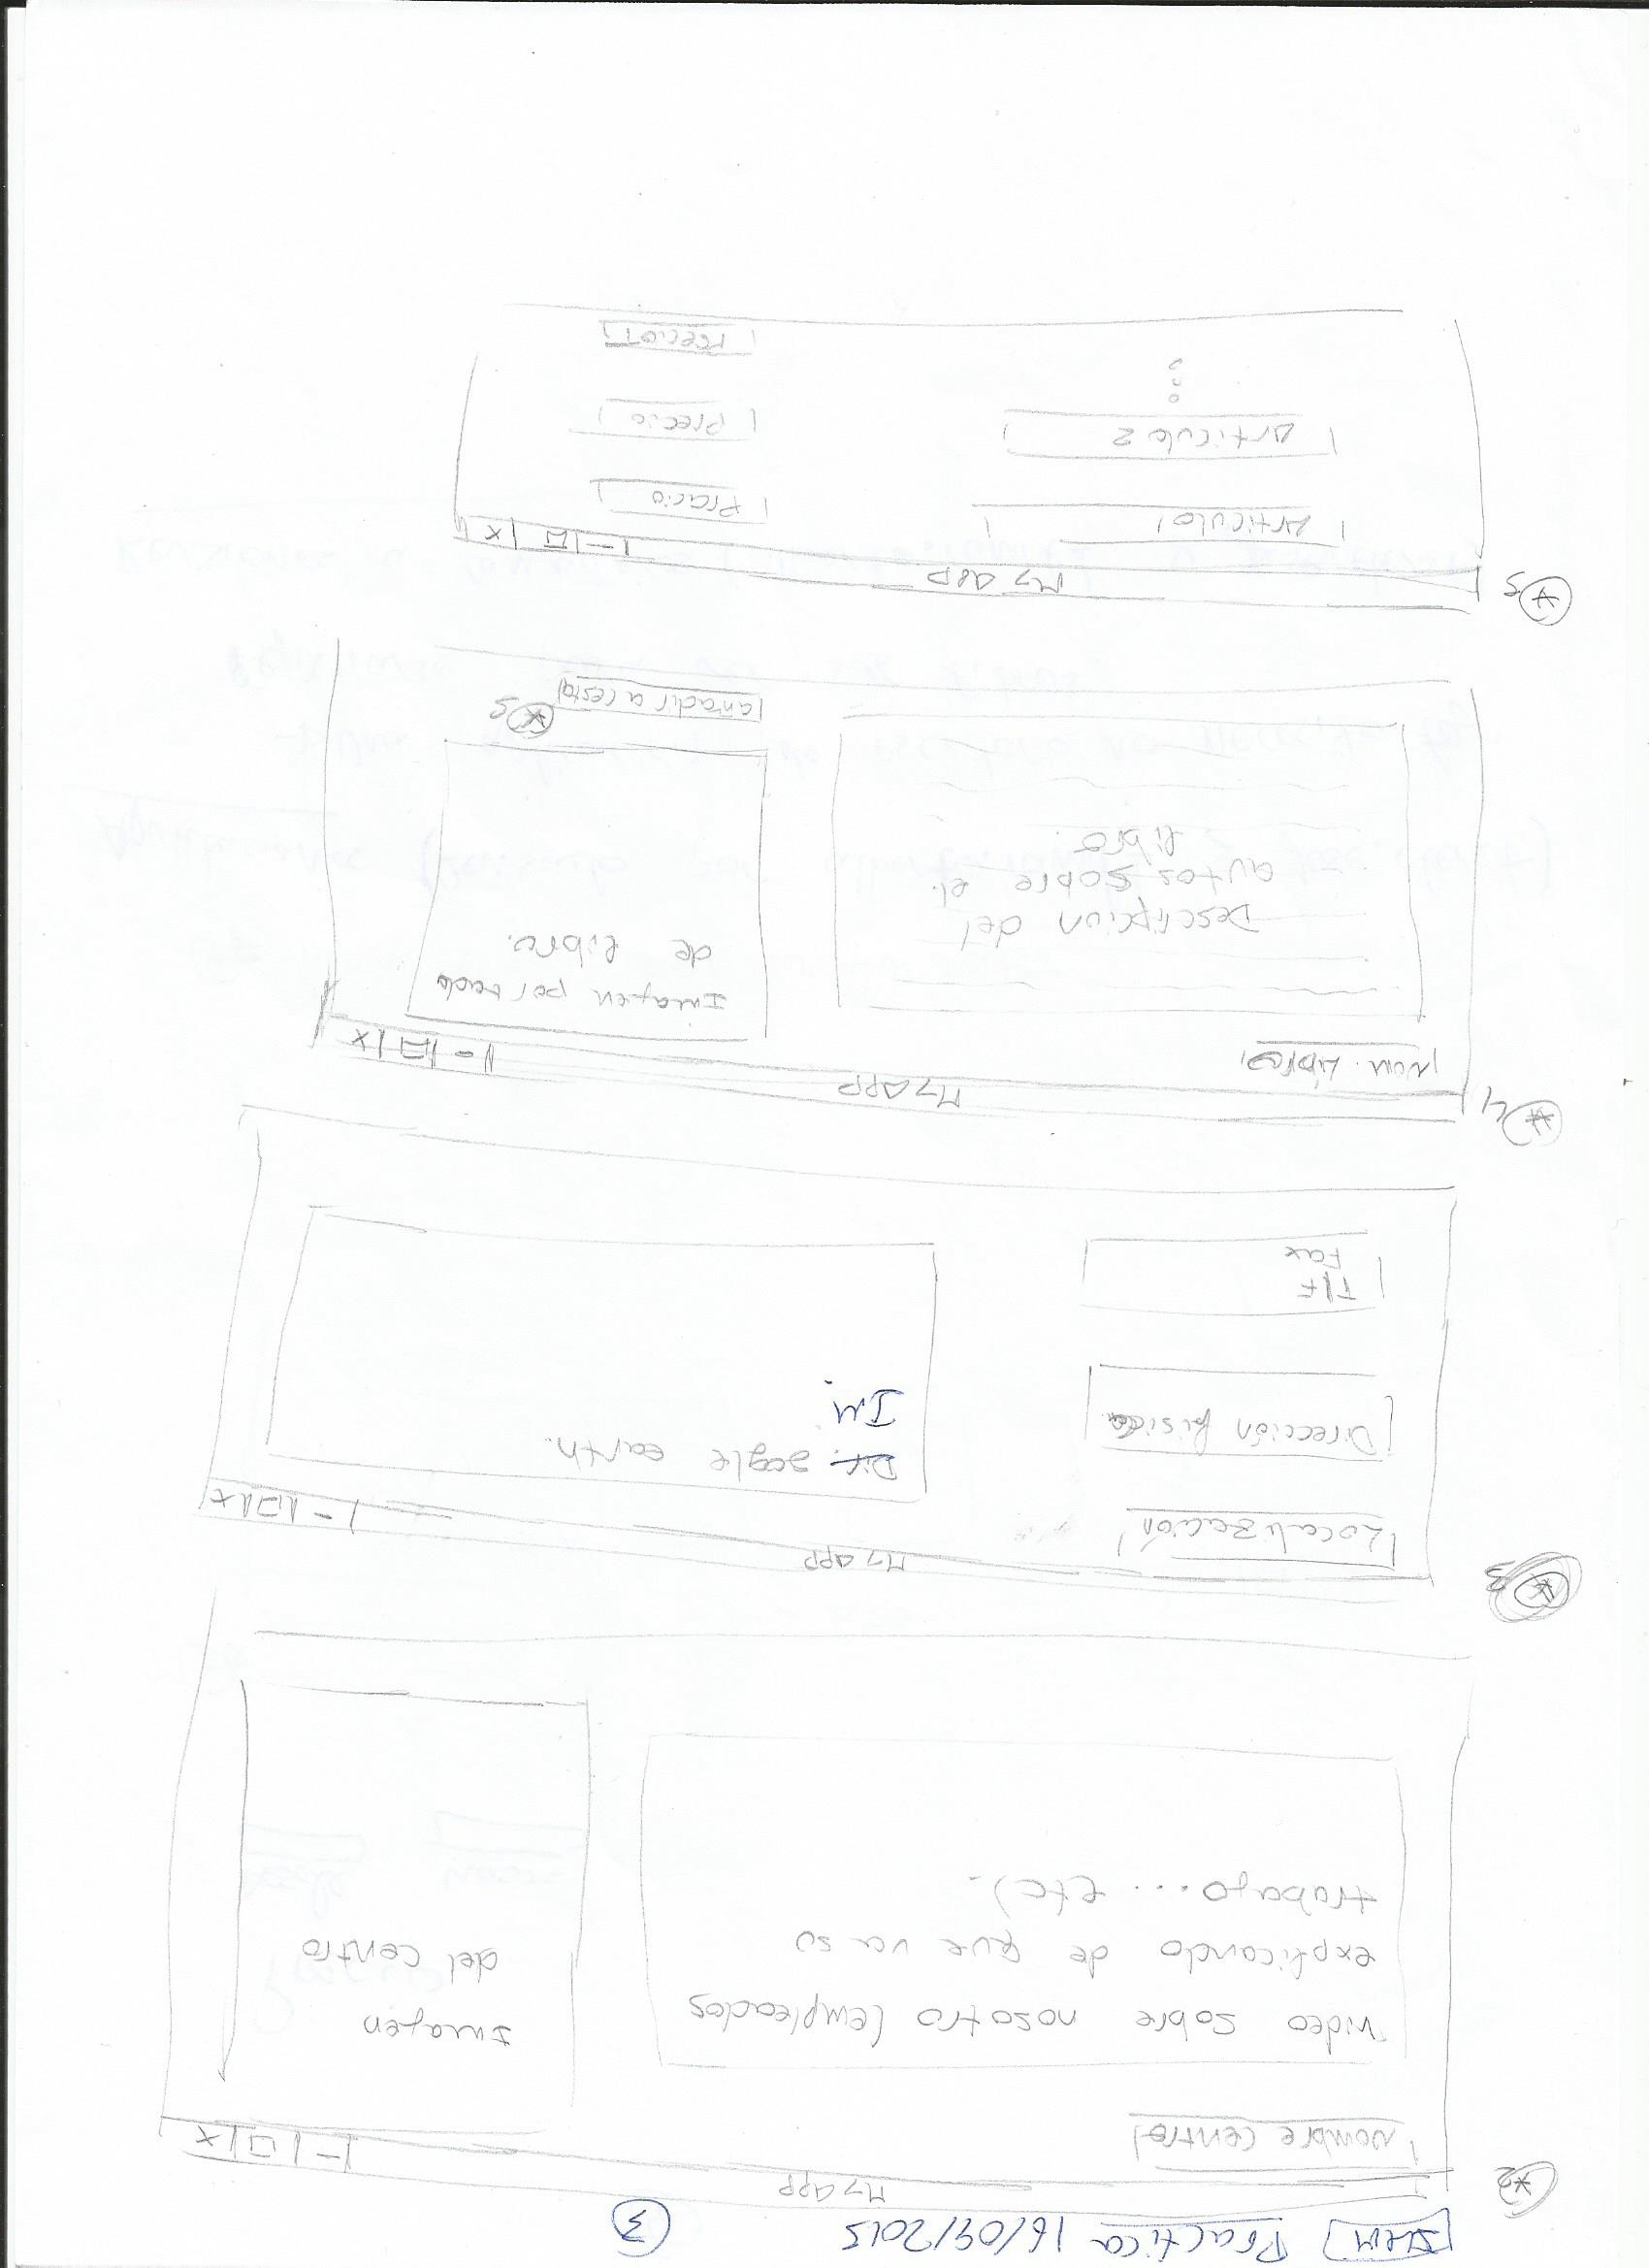 Practica 16/09/2015 3
*2
My app
- □ x
Nombre centro
video sobre nosotro (empleados
explicando de que va su
trabajo... etc).
Imagen
del centro
*3
My app
- □ x
Localización
Dirección fisica
Tlf
Fax
Dir. gogle earth.
IM.
*4
My APP
- □ x
Nom. Libro
Descripcion del
autos sobre el
libro.
Imagen portada
de libro.
añadir a cesta *5
*5
My App
- □ x
Articulo1
Pracio
Articulo 2
Precio
PrecioT